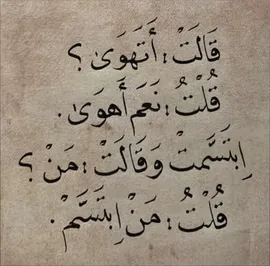 قَالَتْ : أَتَهوَىٰ ؟
قُلْتُ : نَعَم أَهوَىٰ .
اِبتَسَّمتْ وَقَالَتْ : مَنْ ؟
قُلْتُ : مَنْ اِبتَسَّمْ .